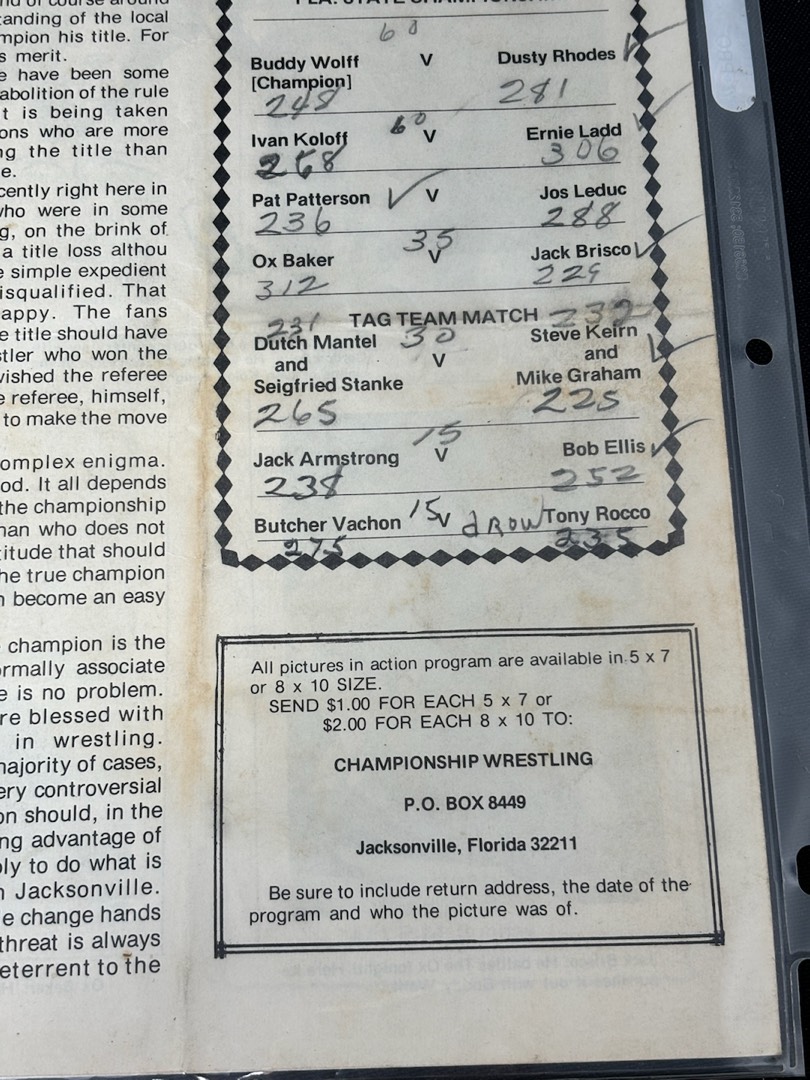 tanding of the local
mpion his title. For
s merit.
e have been some
abolition of the rule
t is being taken
ons who are more
ng the title than
e.
cently right here in
who were in some
g, on the brink of
a title loss althou
e simple expedient
isqualified. That
appy. The fans
e title should have
stler who won the
wished the referee
e referee, himself,
to make the move
omplex enigma.
od. It all depends
the championship
man who does not
titude that should
he true champion
n become an easy
champion is the
ormally associate
e is no problem.
re blessed with
in wrestling.
majority of cases,
ery controversial
on should, in the
ng advantage of
ply to do what is
n Jacksonville.
e change hands
threat is always
eterrent to the
60
Buddy Wolff V Dusty Rhodes
[Champion]
248 281
60
Ivan Koloff V Ernie Ladd
268 306
Pat Patterson V Jos Leduc
236 288
35
Ox Baker V Jack Brisco
312 229
TAG TEAM MATCH
231 30 232
Dutch Mantel Steve Keirn
and V and
Seigfried Stanke Mike Graham
265 225
15
Jack Armstrong V Bob Ellis
238 252
Butcher Vachon 15 V drow Tony Rocco
275 235
All pictures in action program are available in 5 x 7
or 8 x 10 SIZE.
SEND $1.00 FOR EACH 5 x 7 or
$2.00 FOR EACH 8 x 10 TO:
CHAMPIONSHIP WRESTLING
P.O. BOX 8449
Jacksonville, Florida 32211
Be sure to include return address, the date of the
program and who the picture was of.